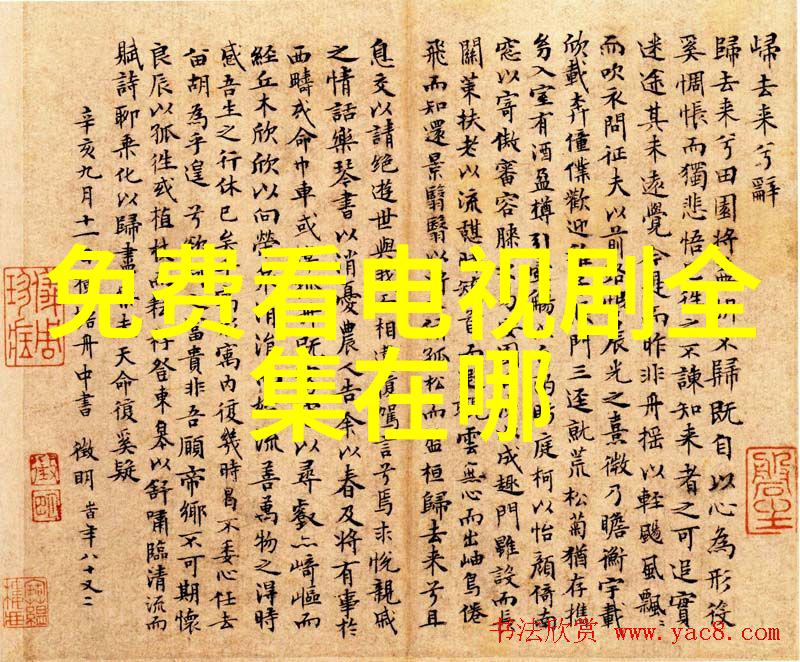 歸去来兮辭
歸去来兮田園将不歸既自以心為形役
奚惆悵而獨悲悟往之不諫知来者之可追實
迷途其未遠覺今是而昨非舟摇以輕颺風飄〻
而吹衣問征夫以前路恨晨光之熹微乃瞻衡宇載
欣載奔僮僕歡迎門三逕就荒松菊猶存攜
幼入室有酒盈樽引壺觴以酌眄庭柯以怡顔倚南
窓以寄傲審容膝成趣門雖設而長
關策扶老以流憩時首而雲無心而出岫鳥倦
飛而知還景翳翳以孤松而盤桓歸去来兮且
息交以請絶遊世與我相遺復駕言兮焉求悦親戚
之情話樂琴書以消憂農人告余以春及将有事於
西疇或命巾車或既以尋壑亦崎嶇而
經丘木欣欣以向榮泉涓流善萬物之得時
感吾生之行休已矣寓内復幾時曷不委心任去
留胡為乎遑兮欲富貴非吾願帝鄉不可期懷
良辰以孤往或植杖而耘耔登東皋以舒嘯臨清流而
賦詩聊乘化以歸盡夫天命復奚疑
辛亥九月十一舟中書 徵明 時年八十又二
免费看电视剧全
集在哪
书法欣赏 www.yac8.com